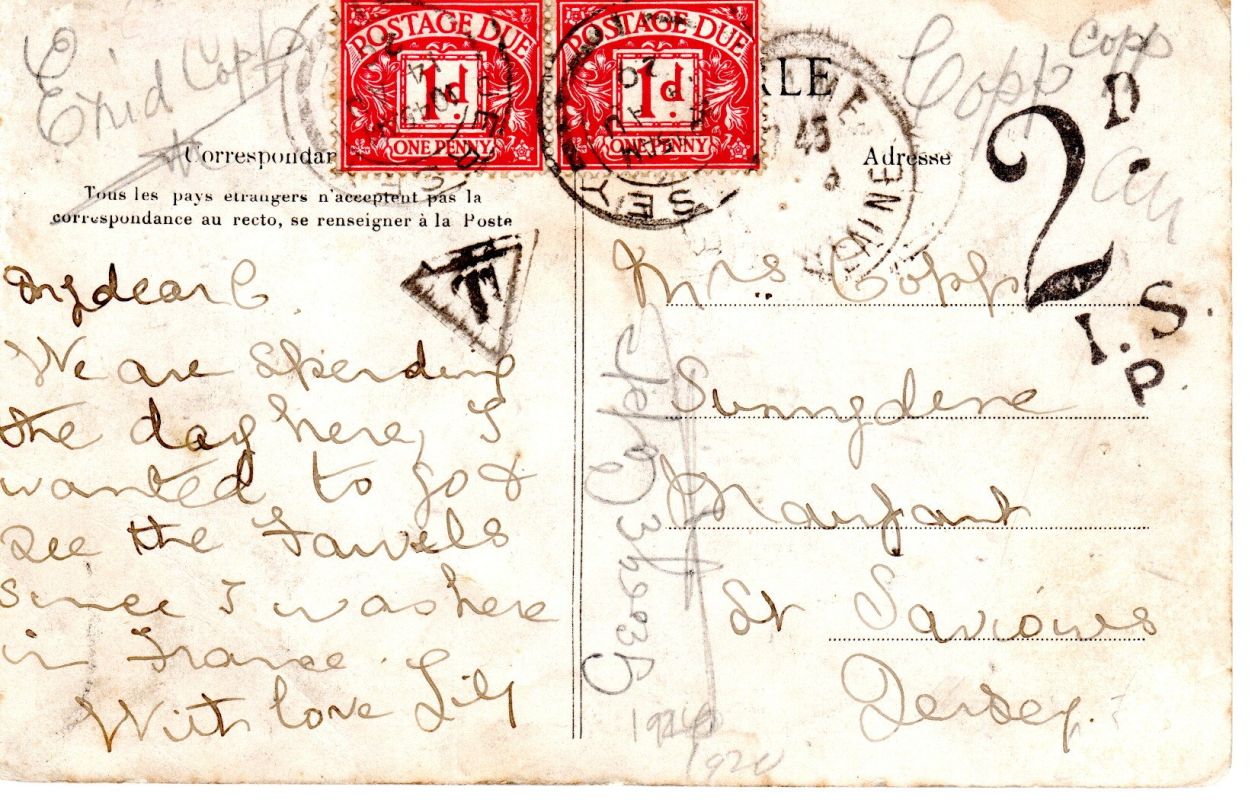 Enid Copp
POSTAGE DUE
1d
ONE PENNY
POSTAGE DUE
1d
ONE PENNY
JERSEY
20
45
VINE
Copp
Copp
2
D.
I.S.
P.
Adresse
Tous les pays etrangers n'acceptent pas la
correspondance au recto, se renseigner à la Poste
T
My dear C
We are Spending
the day here, I
wanted to go &
see the
Since I was here
in France.
With love Lily
Mrs Copp
Sunnydene
Maufant
St Saviours
Jersey.
1920